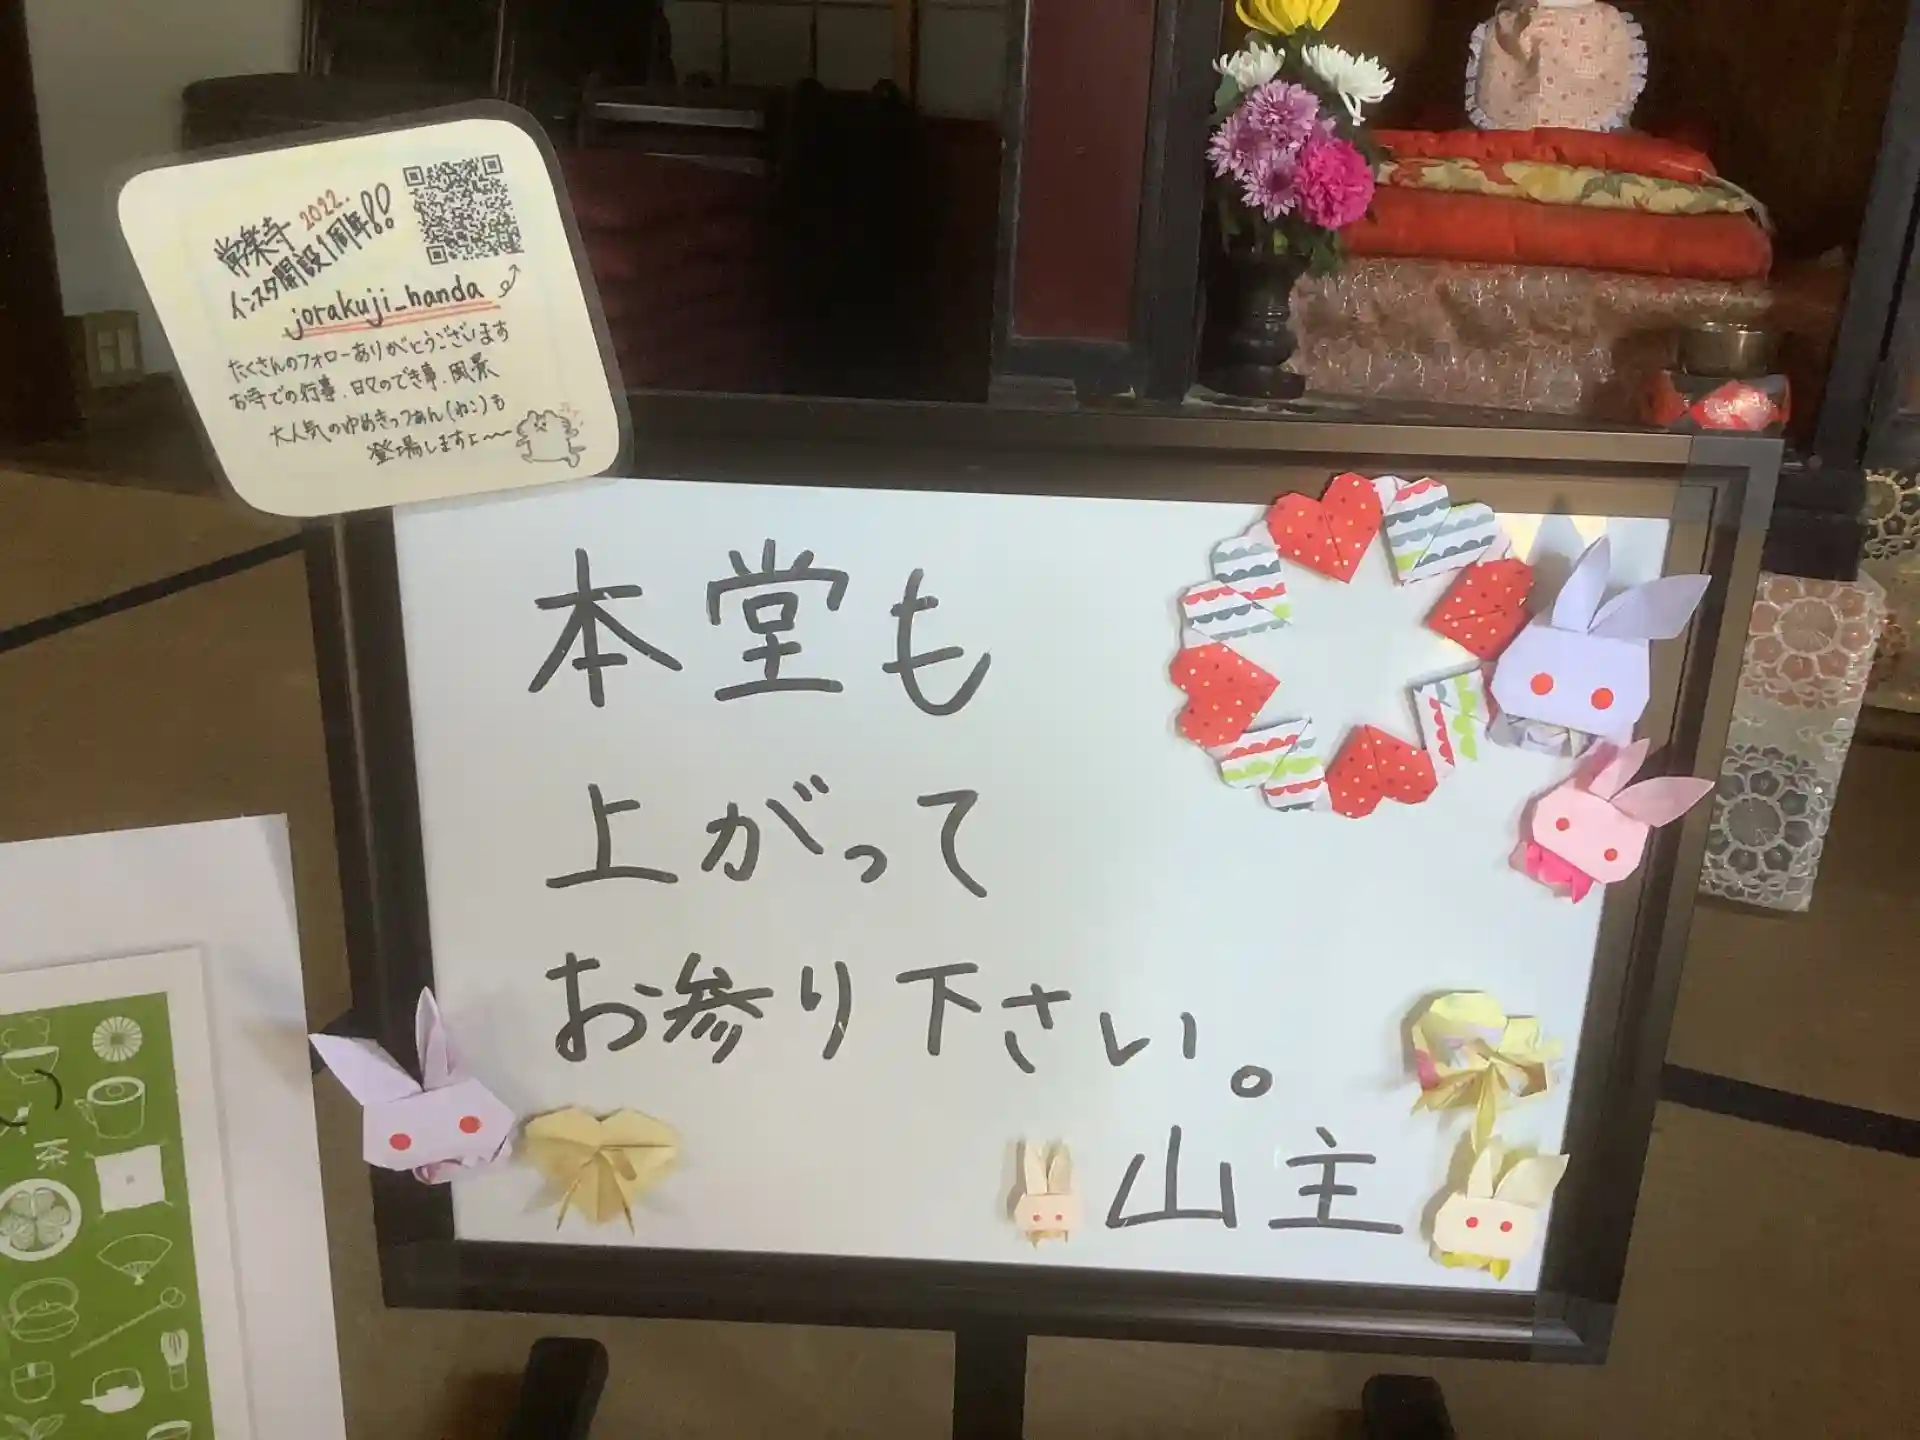 常楽寺 2022.
インスタ開設1周年!!
jorakuji_handa
たくさんのフォローありがとうございます
お寺での行事、日々のでき事、風景
大人気のゆめきっつぁん(ねこ)も
登場しますよ〜
本堂も
上がって
お参り下さい。
山主
茶